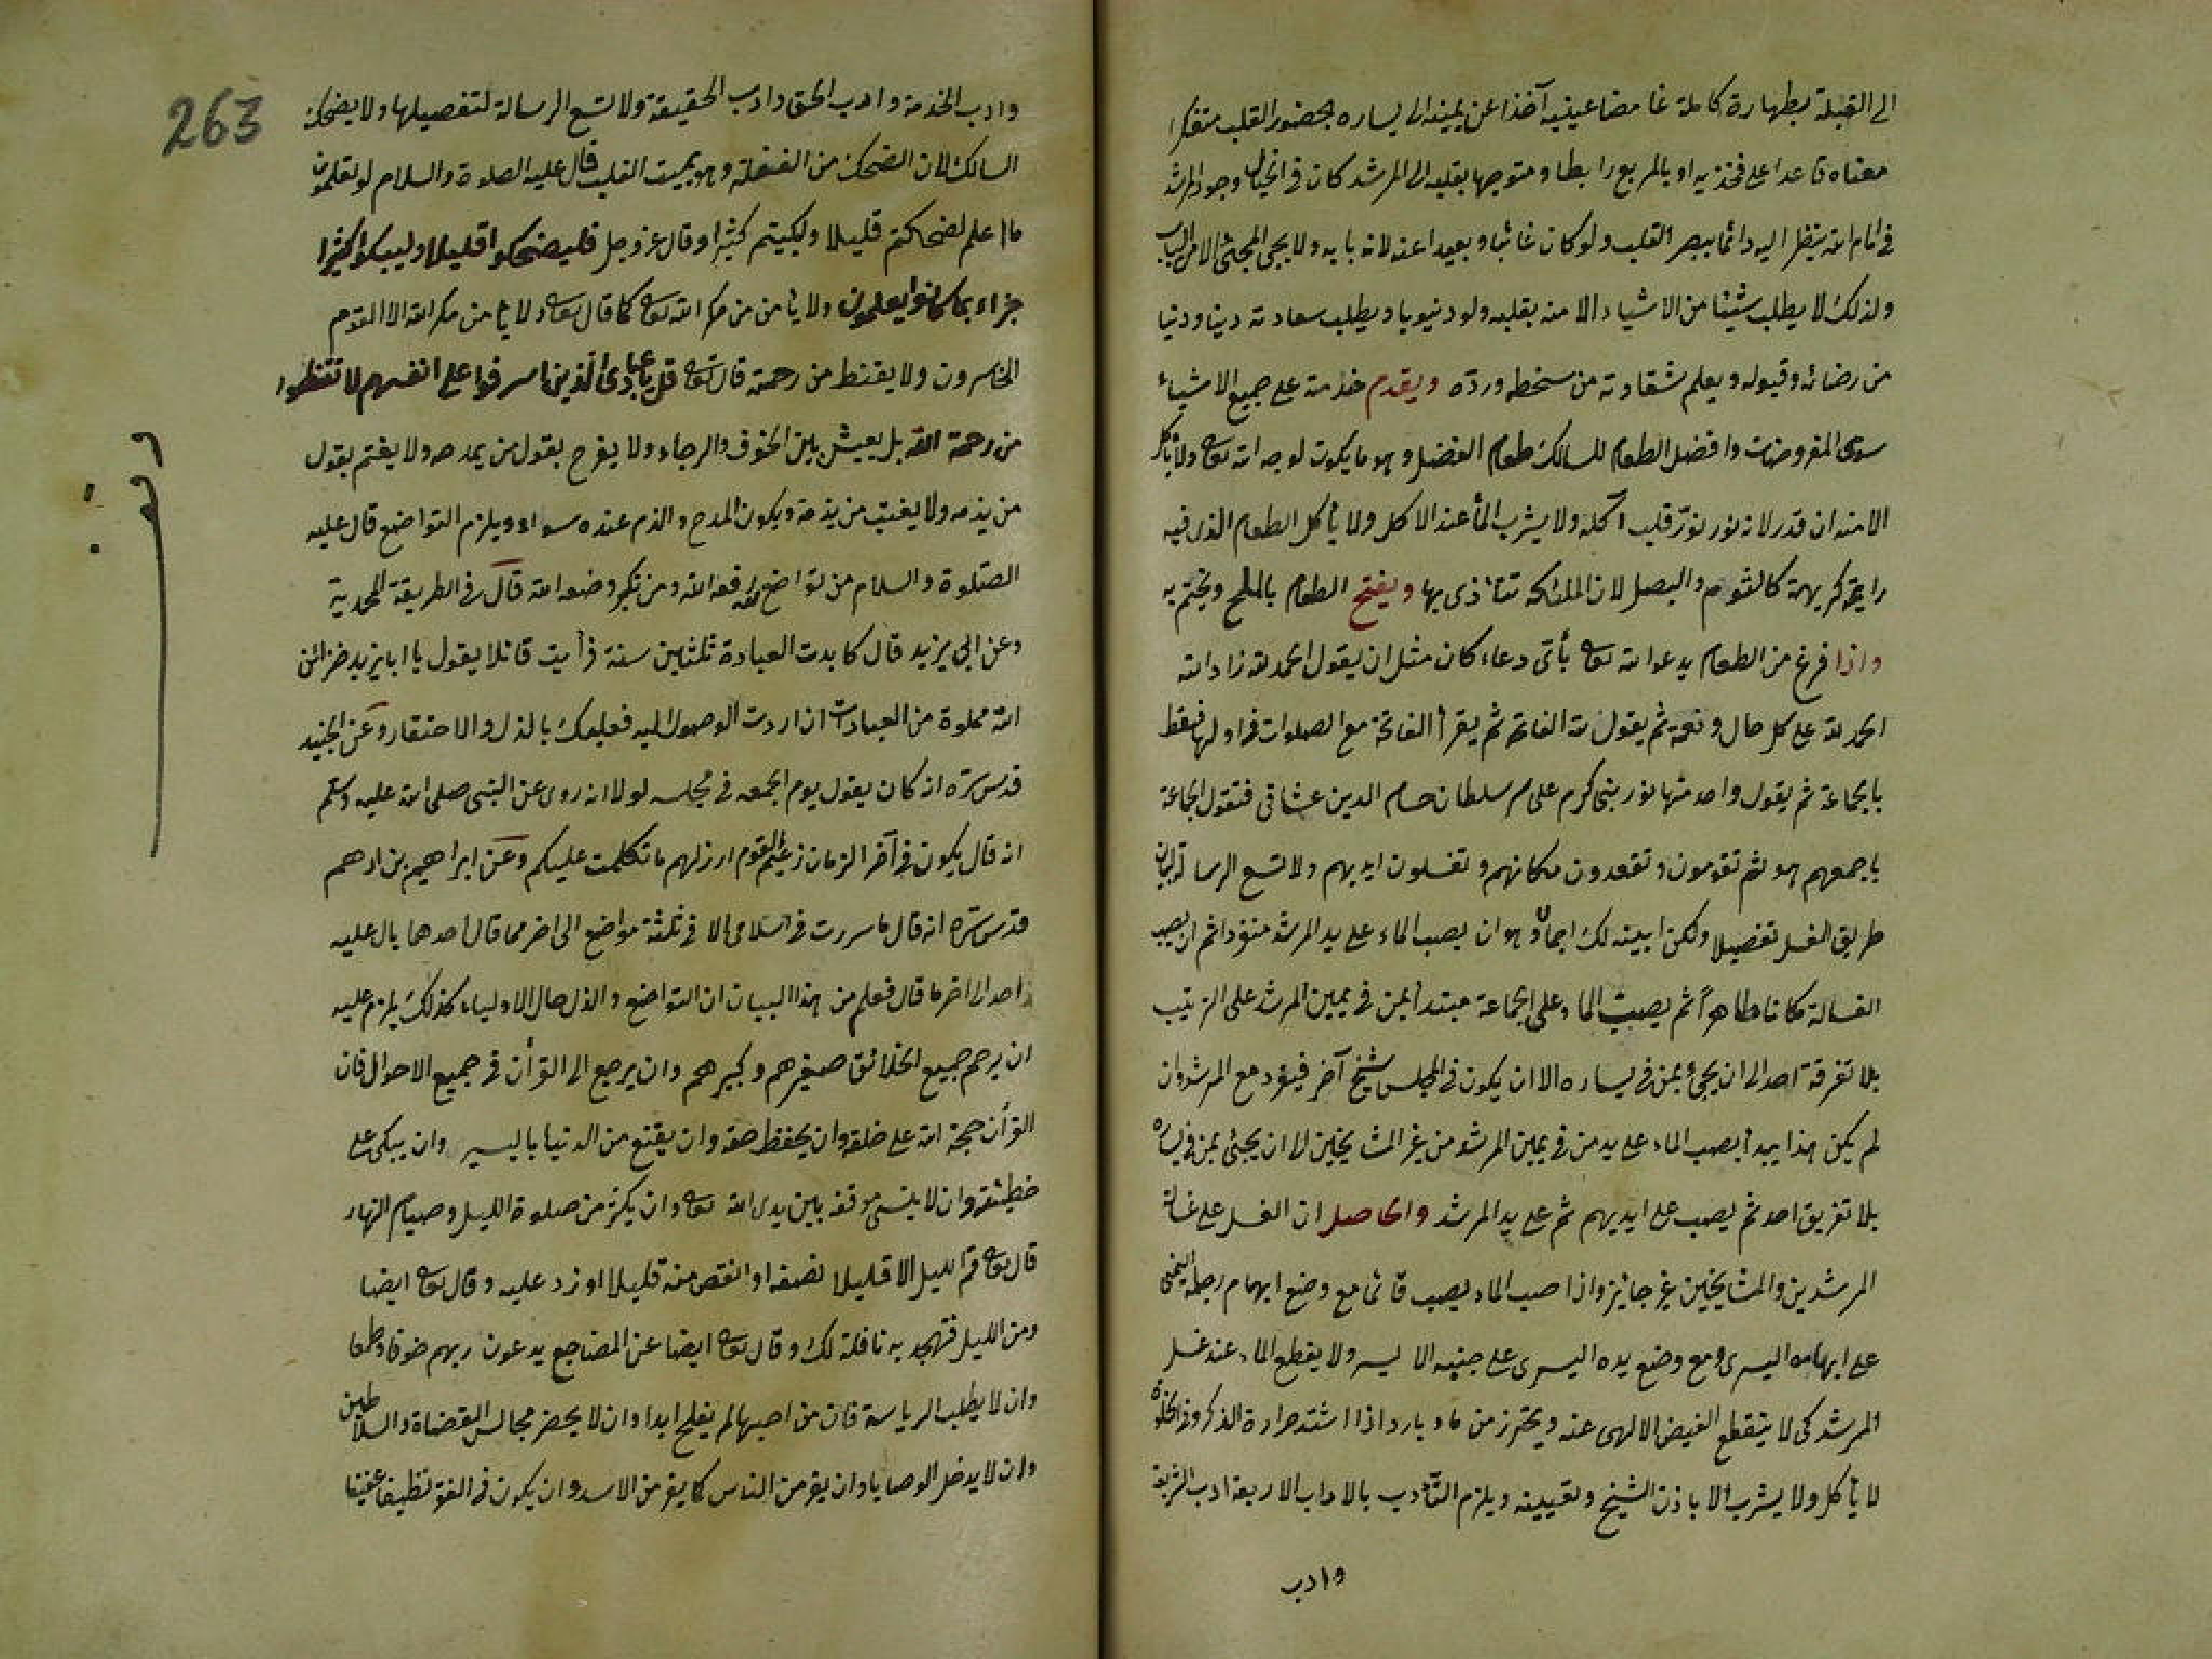 الى القبلة بطهارة كاملة غامضا عينيه آخذا عن يمينه الى يساره بحضور القلب متفكرا
معناه قاعدا على فخذيه او بالمربع رابطا و متوجها بقلبه الى المرشد كان فى الخيال وجود المرشد
فى امام انه ينظر اليه دائما ببصر القلب ولو كان غائبا و بعيدا عنه لانه بابه ولا يجى المجئ الا من الباب
ولذلك لا يطلب شيئا من الاشياء الا منه بقلبه ولو دنيويا و يطلب سعادته دينا و دنيا
من رضائه و قبوله و يعلم شقاوته من سخطه ورده ويقدم خدمته على جميع الاشياء
سوى المفروضات وافضل الطعام للسالك طعام الفضل وهو ما يكون لوجه الله تعالى ولا يأكل
الا منه ان قدر لانه نور نور قلب آكله ولا يشرب الماء عند الاكل ولا يأكل الطعام الذى فيه
رايحة كريهة كالثوم والبصل لان الملئكة تتأذى بها ويفتح الطعام بالملح ويختم به
واذا فرغ من الطعام يدعو الله تعالى بأى دعاء كان مثل ان يقول الحمد لله زاد الله
الحمد لله على كل حال و نعمة ثم يقول لله الفاتحه ثم يقرأ الفاتحة مع الصلوات فى اولها فقط
بالجماعة ثم يقول واحد منها نور بنى كرم على م سلطان حسام الدين عشاقى فتقول الجماعة
باجمعهم هو ثم تقومون و تقعدون مكانهم و تغسلون ايديهم ولا تسع الرسالة لبيان
طريق الغسل تفصيلا ولكن ابينه لك اجمالا وهو ان يصب الماء على يد المرشد منفردا ثم ان يصب
الغسالة مكانا طاهرا ثم يصب الماء على الجماعة مبتدأ بمن فى يمين المرشد على الترتيب
بلا تفرقة احد الى ان يجئ بمن فى يساره الا ان يكون فى المجلس شيخ آخر فيفرد مع المرشد وان
لم يكن هذا يبدأ بصب الماء على يد من فى يمين المرشد من غير المشايخين الى ان يجئ بمن فى يساره
بلا تفريق احد ثم يصب على ايديهم ثم على يد المرشد والحاصل ان الغسل على غسالة
المرشدين والمشايخين غير جائز واذا صب الماء يصب قائما مع وضع ابهام رجله اليمنى
على ابهامه اليسرى و مع وضع يده اليسرى على جنبه الايسر ولا يقطع الماء عند غسل
المرشد كى لا ينقطع الفيض الالهى عنه و يحترز من ماء بارد اذا اشتد حرارة الذكر و فى الخلوة
لا يأكل ولا يشرب الا باذن الشيخ و تعيينه و يلزم التأدب بالاداب الاربعة ادب الشريعة
وادب
263
وادب الخدمة و ادب الحق وادب الحقيقة ولا تسع الرسالة لتفصيلها ولا يضحك
السالك لان الضحك من الغفلة وهو يميت القلب قال عليه الصلوة والسلام لو تعلمون
ما اعلم لضحكتم قليلا و لبكيتم كثيرا و قال عز وجل فليضحكوا قليلا وليبكوا كثيرا
جزاء بما كانوا يعلمون ولا يأمن من مكر الله تعالى كما قال تعالى ولا يأمن مكر الله الا القوم
الخاسرون ولا يقنط من رحمته قال تعالى قل يا عبادى الذين اسرفوا على انفسهم لا تقنطوا
من رحمة الله بل يعيش بين الخوف والرجاء ولا يفرح بقول من يمدحه ولا يغتم بقول
من يذمه ولا يغتب من يذمه و يكون المدح والذم عنده سواء و يلزم التواضع قال عليه
الصلوة والسلام من تواضع لله رفعه الله ومن تكبر وضعه الله قال فى الطريقة المحمدية
وعن ابى يزيد قال كابدت العبادة ثلثين سنة فرأيت قائلا يقول يا ابا يزيد خزائن
الله مملوة من العبادات ان اردت الوصول اليه فعليك بالذل والاحتقار وعن الجنيد
قدس سره انه كان يقول يوم الجمعه فى مجلسه لولا انه روى عن النبى صلى الله عليه وسلم
انه قال يكون فى آخر الزمان زعيم القوم ارذلهم ما تكلمت عليكم وعن ابراهيم بن ادهم
قدس سره انه قال ما سررت فى اسلامى الا فى ثلثة مواضع الى اخر مما قال احدها بال عليه
احد الى اخر ما قال فعلم من هذا البيان ان التواضع والذل حال الاولياء كذلك يلزم عليه
ان يرحم جميع الخلائق صغيرهم و كبيرهم وان يرجع الى القرأن فى جميع الاحوال فان
القرأن حجة الله على خلقه وان يحفظ حقه وان يقنع من الدنيا باليسير وان يبكى على
خطيئته وان لا ينسى موقفه بين يدى الله تعالى وان يكثر من صلوة الليل و صيام النهار
قال تعالى قم الليل الا قليلا نصفه او انقص منه قليلا او زد عليه و قال تعالى ايضا
ومن الليل فتهجد به نافلة لك و قال تعالى ايضا عن المضاجع يدعون ربهم خوفا وطمعا
وان لا يطلب الرياسة فان من احبها لم يفلح ابدا وان لا يحضر مجالس القضاة والسلاطين
وان لا يدخل الوصايا وان يفر من الناس كما يفر من الاسد وان يكون فى الفقر نظيفا عفيفا